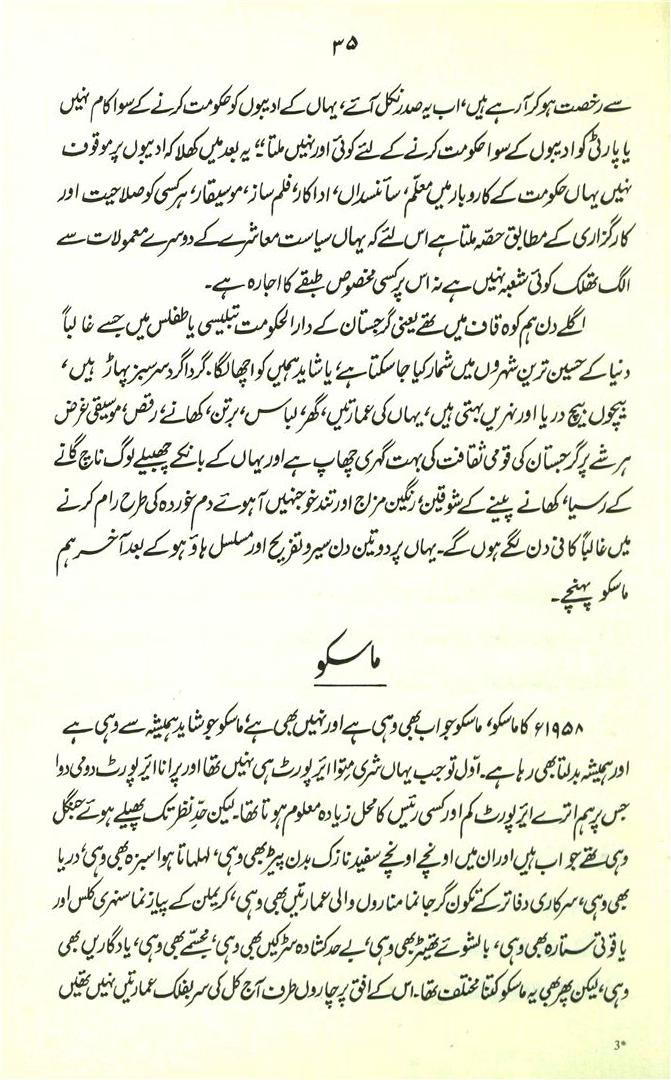 ۳۵
سے رخصت ہو کر آ رہے ہیں، اب یہ صدر نکل آئے، یہاں کے ادیبوں کو حکومت کرنے کے سوا کام نہیں
یا پارٹی کو ادیبوں کے سوا حکومت کرنے کے لئے کوئی اور نہیں ملتا“ یہ بعد میں کھلا کہ ادیبوں پر موقوف
نہیں یہاں حکومت کے کاروبار میں معلّم، سائنسداں، اداکار، فلم ساز، موسیقار، ہر کسی کو صلاحیت اور
کارگزاری کے مطابق حصّہ ملتا ہے اس لئے کہ یہاں سیاست معاشرے کے دوسرے معمولات سے
الگ تھلک کوئی شعبہ نہیں ہے نہ اس پر کسی مخصوص طبقے کا اجارہ ہے۔
اگلے دن ہم کوہ قاف میں تھے یعنی گرجستان کے دارالحکومت تبلیسی یا طفلس میں جسے غالباً
دنیا کے حسین ترین شہروں میں شمار کیا جا سکتا ہے، یا شاید ہمیں کو اچھا لگا۔ گرداگرد سرسبز پہاڑ ہیں،
بیچوں بیچ دریا اور نہریں بہتی ہیں، یہاں کی عمارتیں، گھر، لباس، برتن، کھانے، رقص، موسیقی غرض
ہر شے پر گرجستان کی قومی ثقافت کی بہت گہری چھاپ ہے اور یہاں کے بانکے چھبیلے لوگ ناچ گانے
کے رسیا، کھانے پینے کے شوقین، رنگین مزاج اور تند خو جنہیں آہوئے دم خوردہ کی طرح رام کرنے
میں غالباً کافی دن لگے ہوں گے۔ یہاں پر دو تین دن سیر و تفریح اور مسلسل ہاؤ ہو کے بعد آخر ہم
ماسکو پہنچے۔
ماسکو
۱۹۵۸ء کا ماسکو، ماسکو جو اب بھی وہی ہے اور نہیں بھی ہے، ماسکو جو شاید ہمیشہ سے وہی ہے
اور ہمیشہ بدلتا بھی رہا ہے۔ اوّل تو جب یہاں شری متوا ائیرپورٹ ہی نہیں تھا اور پرانا ائیرپورٹ دومی دوا
جس پر ہم اترے ائیرپورٹ کم اور کسی رئیس کا محل زیادہ معلوم ہوتا تھا۔ لیکن حدِّ نظر تک پھیلے ہوئے جنگل
وہی تھے جو اب ہیں اور ان میں اونچے اونچے سفید نازک بدن پیڑ بھی وہی، لہلہاتا ہوا سبزہ بھی وہی، دریا
بھی وہی، سرکاری دفاتر کے تکون گرجا نما مناروں والی عمارتیں بھی وہی، کریملن کے پیاز نما سنہری کلس اور
یاقوتی ستارہ بھی وہی، بالشوئے تھیٹر بھی وہی، بے حد کشادہ سڑکیں بھی وہی، مجسّمے بھی وہی، یادگاریں بھی
وہی، لیکن پھر بھی یہ ماسکو کتنا مختلف تھا۔ اس کے افق پر چاروں طرف آج کل کی سربفلک عمارتیں نہیں تھیں
3*